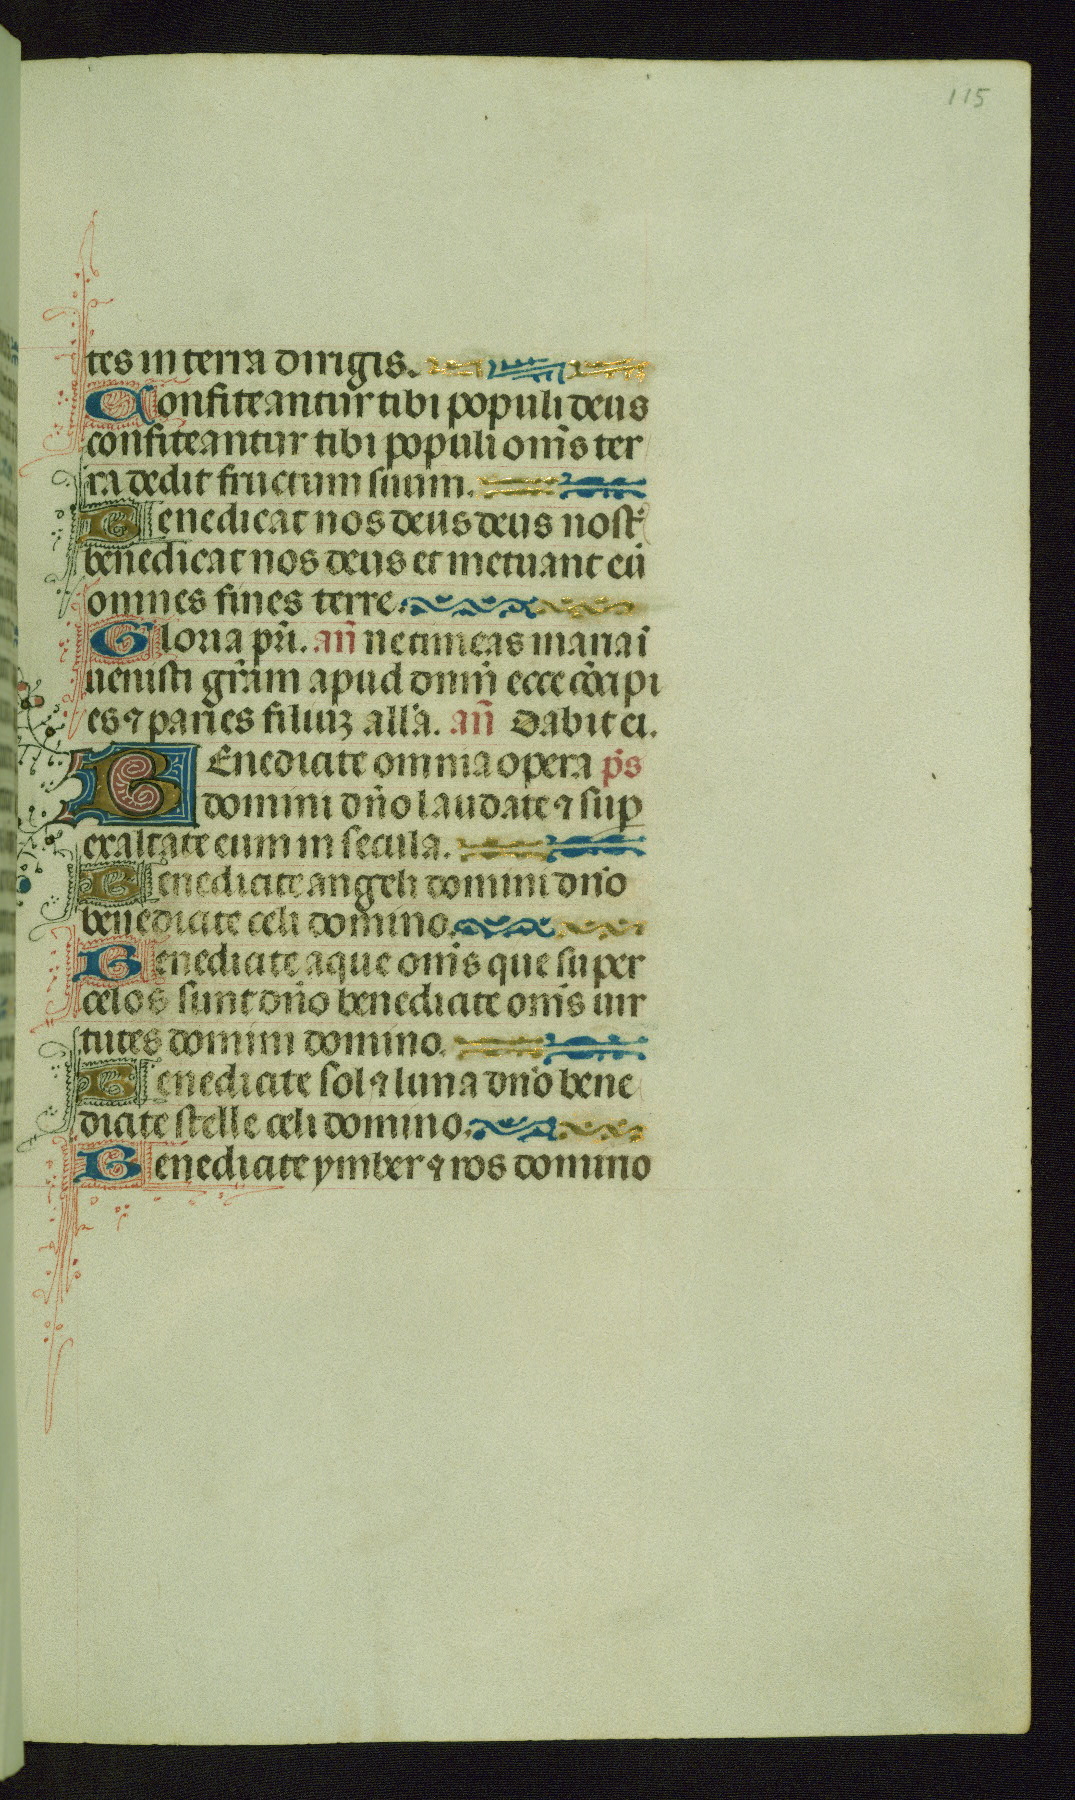 115
tes in terra dirigis.
Confiteantur tibi populi deus
confiteantur tibi populi oms̄ ter
ra dedit fructum suum.
Benedicat nos deus deus nost᷑
benedicat nos deus et metuant eū
omnes fines terre.
Gloria pr̄i. an̄ ne timeas maria ī
uenisti gr̄am apud dn̄m ecce cōcipi
es ⁊ paries filiuꝫ all'a. an̄ Dabit ei.
BEnedicite omnia opera p̄s
domini dn̄o laudate ⁊ suꝑ
exaltate eum in secula.
Benedicite angeli domini dn̄o
benedicite celi domino.
Benedicite aque oms̄ que super
celos sunt dn̄o benedicite oms̄ uir
tutes domini domino.
Benedicite sol ⁊ luna dn̄o bene
dicite stelle celi domino.
Benedicite ymber ⁊ ros domino